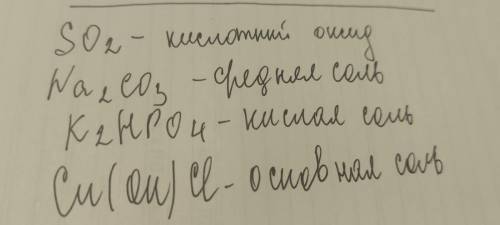 SO2 - кислотный оксид
Na2CO3 - средняя соль
K2HPO4 - кислая соль
Cu(OH)Cl - основная соль